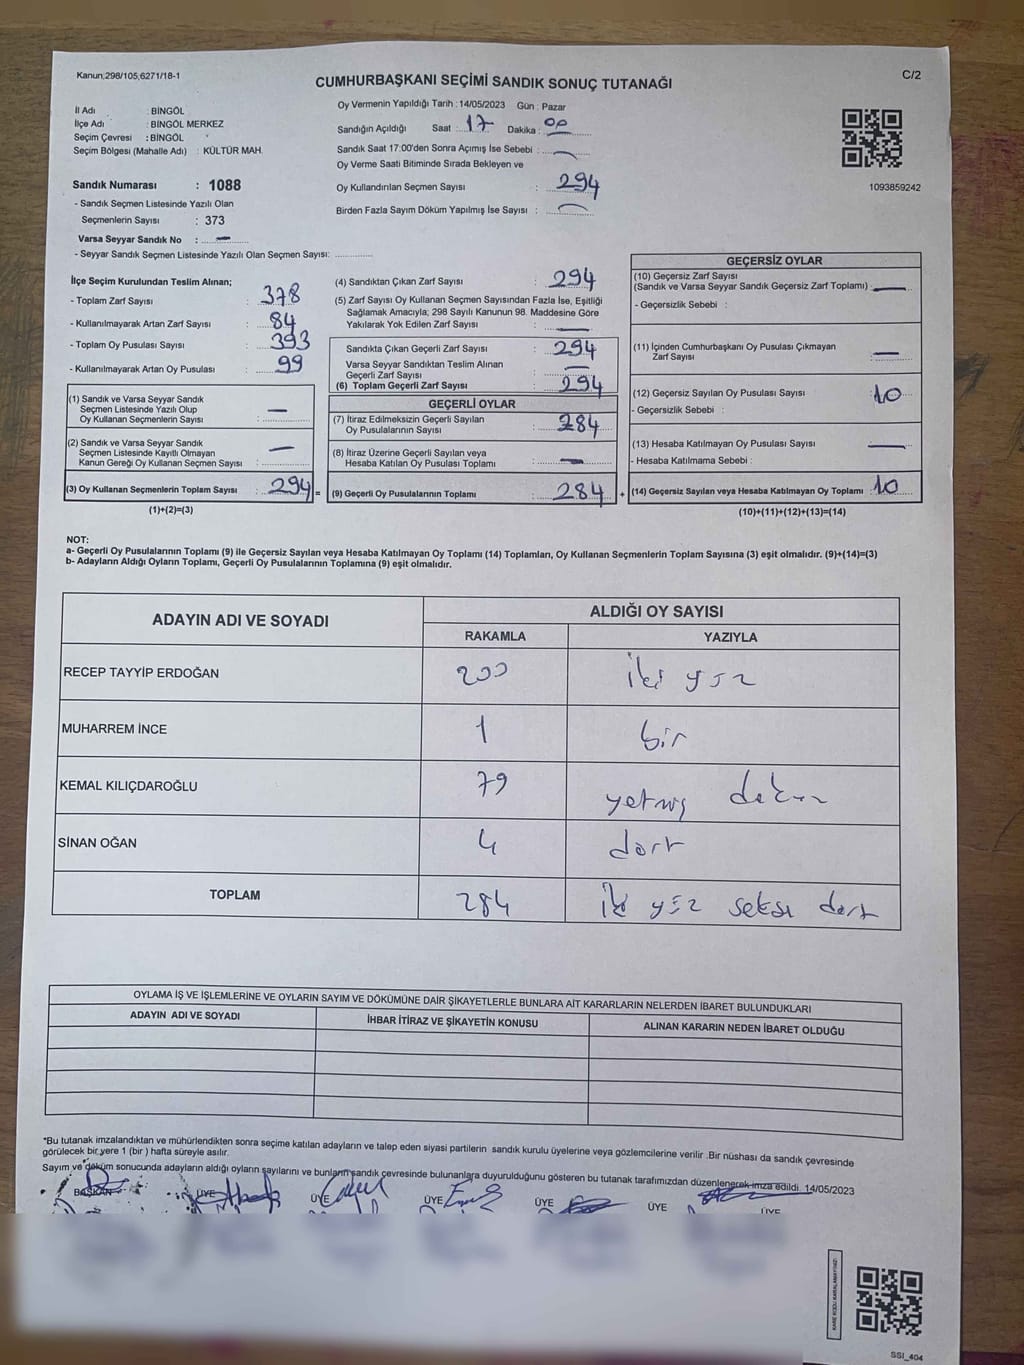 Kanun;298/105;6271/18-1
C/2
CUMHURBAŞKANI SEÇİMİ SANDIK SONUÇ TUTANAĞI
İl Adı : BİNGÖL
İlçe Adı : BİNGÖL MERKEZ
Seçim Çevresi : BİNGÖL
Seçim Bölgesi (Mahalle Adı) : KÜLTÜR MAH.
Sandık Numarası : 1088
- Sandık Seçmen Listesinde Yazılı Olan
Seçmenlerin Sayısı : 373
Varsa Seyyar Sandık No : —
- Seyyar Sandık Seçmen Listesinde Yazılı Olan Seçmen Sayısı: ..............
Oy Vermenin Yapıldığı Tarih : 14/05/2023 Gün : Pazar
Sandığın Açıldığı Saat : 17 Dakika : 00
Sandık Saat 17:00'den Sonra Açımış İse Sebebi : —
Oy Verme Saati Bitiminde Sırada Bekleyen ve
Oy Kullandırılan Seçmen Sayısı : 294
Birden Fazla Sayım Döküm Yapılmış İse Sayısı : —
1093859242
İlçe Seçim Kurulundan Teslim Alınan;
- Toplam Zarf Sayısı : 378
- Kullanılmayarak Artan Zarf Sayısı : 84
- Toplam Oy Pusulası Sayısı : 393
- Kullanılmayarak Artan Oy Pusulası : 99
(1) Sandık ve Varsa Seyyar Sandık
Seçmen Listesinde Yazılı Olup
Oy Kullanan Seçmenlerin Sayısı : —
(2) Sandık ve Varsa Seyyar Sandık
Seçmen Listesinde Kayıtlı Olmayan
Kanun Gereği Oy Kullanan Seçmen Sayısı : —
(3) Oy Kullanan Seçmenlerin Toplam Sayısı : 294 =
(1)+(2)=(3)
(4) Sandıktan Çıkan Zarf Sayısı : 294
(5) Zarf Sayısı Oy Kullanan Seçmen Sayısından Fazla İse, Eşitliği
Sağlamak Amacıyla; 298 Sayılı Kanunun 98. Maddesine Göre
Yakılarak Yok Edilen Zarf Sayısı : —
Sandıkta Çıkan Geçerli Zarf Sayısı : 294
Varsa Seyyar Sandıktan Teslim Alınan
Geçerli Zarf Sayısı : —
(6) Toplam Geçerli Zarf Sayısı : 294
GEÇERLİ OYLAR
(7) İtiraz Edilmeksizin Geçerli Sayılan
Oy Pusulalarının Sayısı : 284
(8) İtiraz Üzerine Geçerli Sayılan veya
Hesaba Katılan Oy Pusulası Toplamı : —
(9) Geçerli Oy Pusulalarının Toplamı : 284 +
GEÇERSİZ OYLAR
(10) Geçersiz Zarf Sayısı
(Sandık ve Varsa Seyyar Sandık Geçersiz Zarf Toplamı) : —
- Geçersizlik Sebebi :
(11) İçinden Cumhurbaşkanı Oy Pusulası Çıkmayan
Zarf Sayısı : —
(12) Geçersiz Sayılan Oy Pusulası Sayısı : 10
- Geçersizlik Sebebi :
(13) Hesaba Katılmayan Oy Pusulası Sayısı : —
- Hesaba Katılmama Sebebi :
(14) Geçersiz Sayılan veya Hesaba Katılmayan Oy Toplamı : 10
(10)+(11)+(12)+(13)=(14)
NOT:
a- Geçerli Oy Pusulalarının Toplamı (9) ile Geçersiz Sayılan veya Hesaba Katılmayan Oy Toplamı (14) Toplamları, Oy Kullanan Seçmenlerin Toplam Sayısına (3) eşit olmalıdır. (9)+(14)=(3)
b- Adayların Aldığı Oyların Toplamı, Geçerli Oy Pusulalarının Toplamına (9) eşit olmalıdır.
ADAYIN ADI VE SOYADI
ALDIĞI OY SAYISI
RAKAMLA YAZIYLA
RECEP TAYYİP ERDOĞAN 200 iki yüz
MUHARREM İNCE 1 bir
KEMAL KILIÇDAROĞLU 79 yetmiş dokuz
SİNAN OĞAN 4 dört
TOPLAM 284 iki yüz seksn dört
OYLAMA İŞ VE İŞLEMLERİNE VE OYLARIN SAYIM VE DÖKÜMÜNE DAİR ŞİKAYETLERLE BUNLARA AİT KARARLARIN NELERDEN İBARET BULUNDUKLARI
ADAYIN ADI VE SOYADI İHBAR İTİRAZ VE ŞİKAYETİN KONUSU ALINAN KARARIN NEDEN İBARET OLDUĞU
*Bu tutanak imzalandıktan ve mühürlendikten sonra seçime katılan adayların ve talep eden siyasi partilerin sandık kurulu üyelerine veya gözlemcilerine verilir .Bir nüshası da sandık çevresinde
görülecek bir yere 1 (bir ) hafta süreyle asılır.
Sayım ve döküm sonucunda adayların aldığı oyların sayılarını ve bunların sandık çevresinde bulunanlara duyurulduğunu gösteren bu tutanak tarafımızdan düzenlenerek imza edildi. 14/05/2023
BAŞKAN ÜYE ÜYE ÜYE ÜYE ÜYE ÜYE
KARE KODU KARALAMAYINIZ!
SSI_404